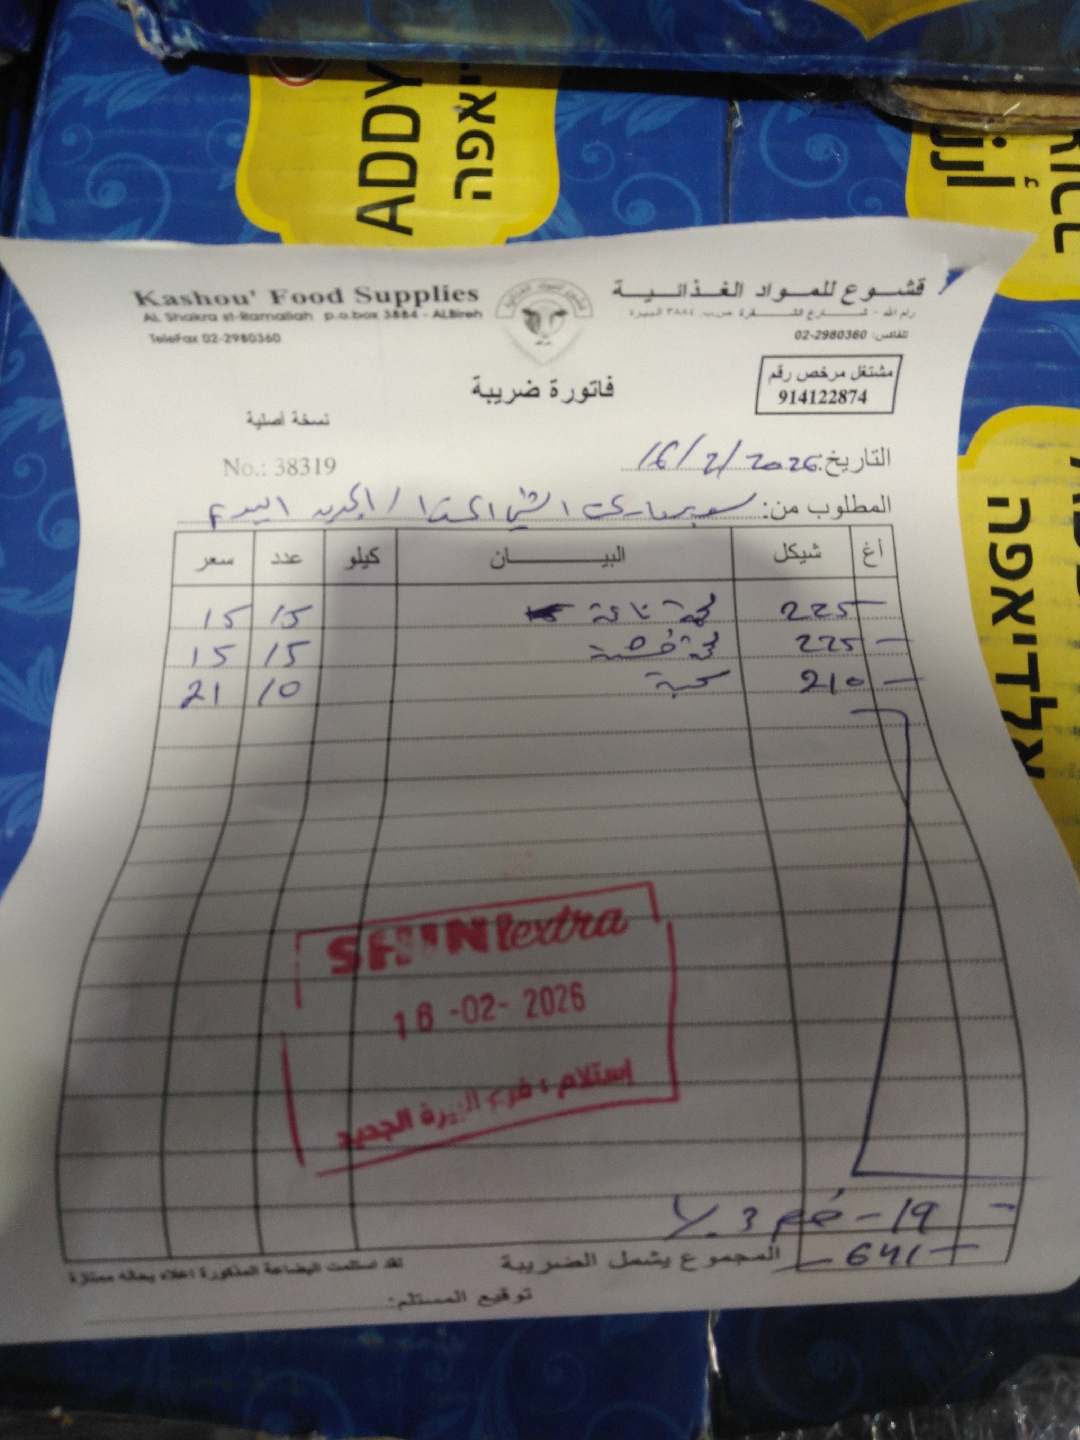 ADDY
יאפה
אלדיאפה
Kashou' Food Supplies
AL Shakra st-Ramallah p.o.box 3884 - ALBireh
TeleFax 02-2980360
قشــوع للمــواد الغــذائيــة
رام الله - شـــارع الشـــقرة ص.ب. ٣٨٨٤ البيرة
تلفاكس: 02-2980360
مشتغل مرخص رقم
914122874
فاتورة ضريبة
نسخة أصلية
No.: 38319
التاريخ: 16/2/2026
المطلوب من: سوبرماركت الشني اكسترا /
أغ شيكل البيـــــان كيلو عدد سعر
225 - كمة ناعمة 15 15
225 - كمة خشنة 15 15
210 - 10 21
SHINI extra
16 -02- 2026
إستلام : فرع البيرة الجديد
19 - خصم 3 %
المجموع يشمل الضريبة 641 -
لقد استلمت البضاعة المذكورة اعلاه بحاله ممتازة
توقيع المستلم: